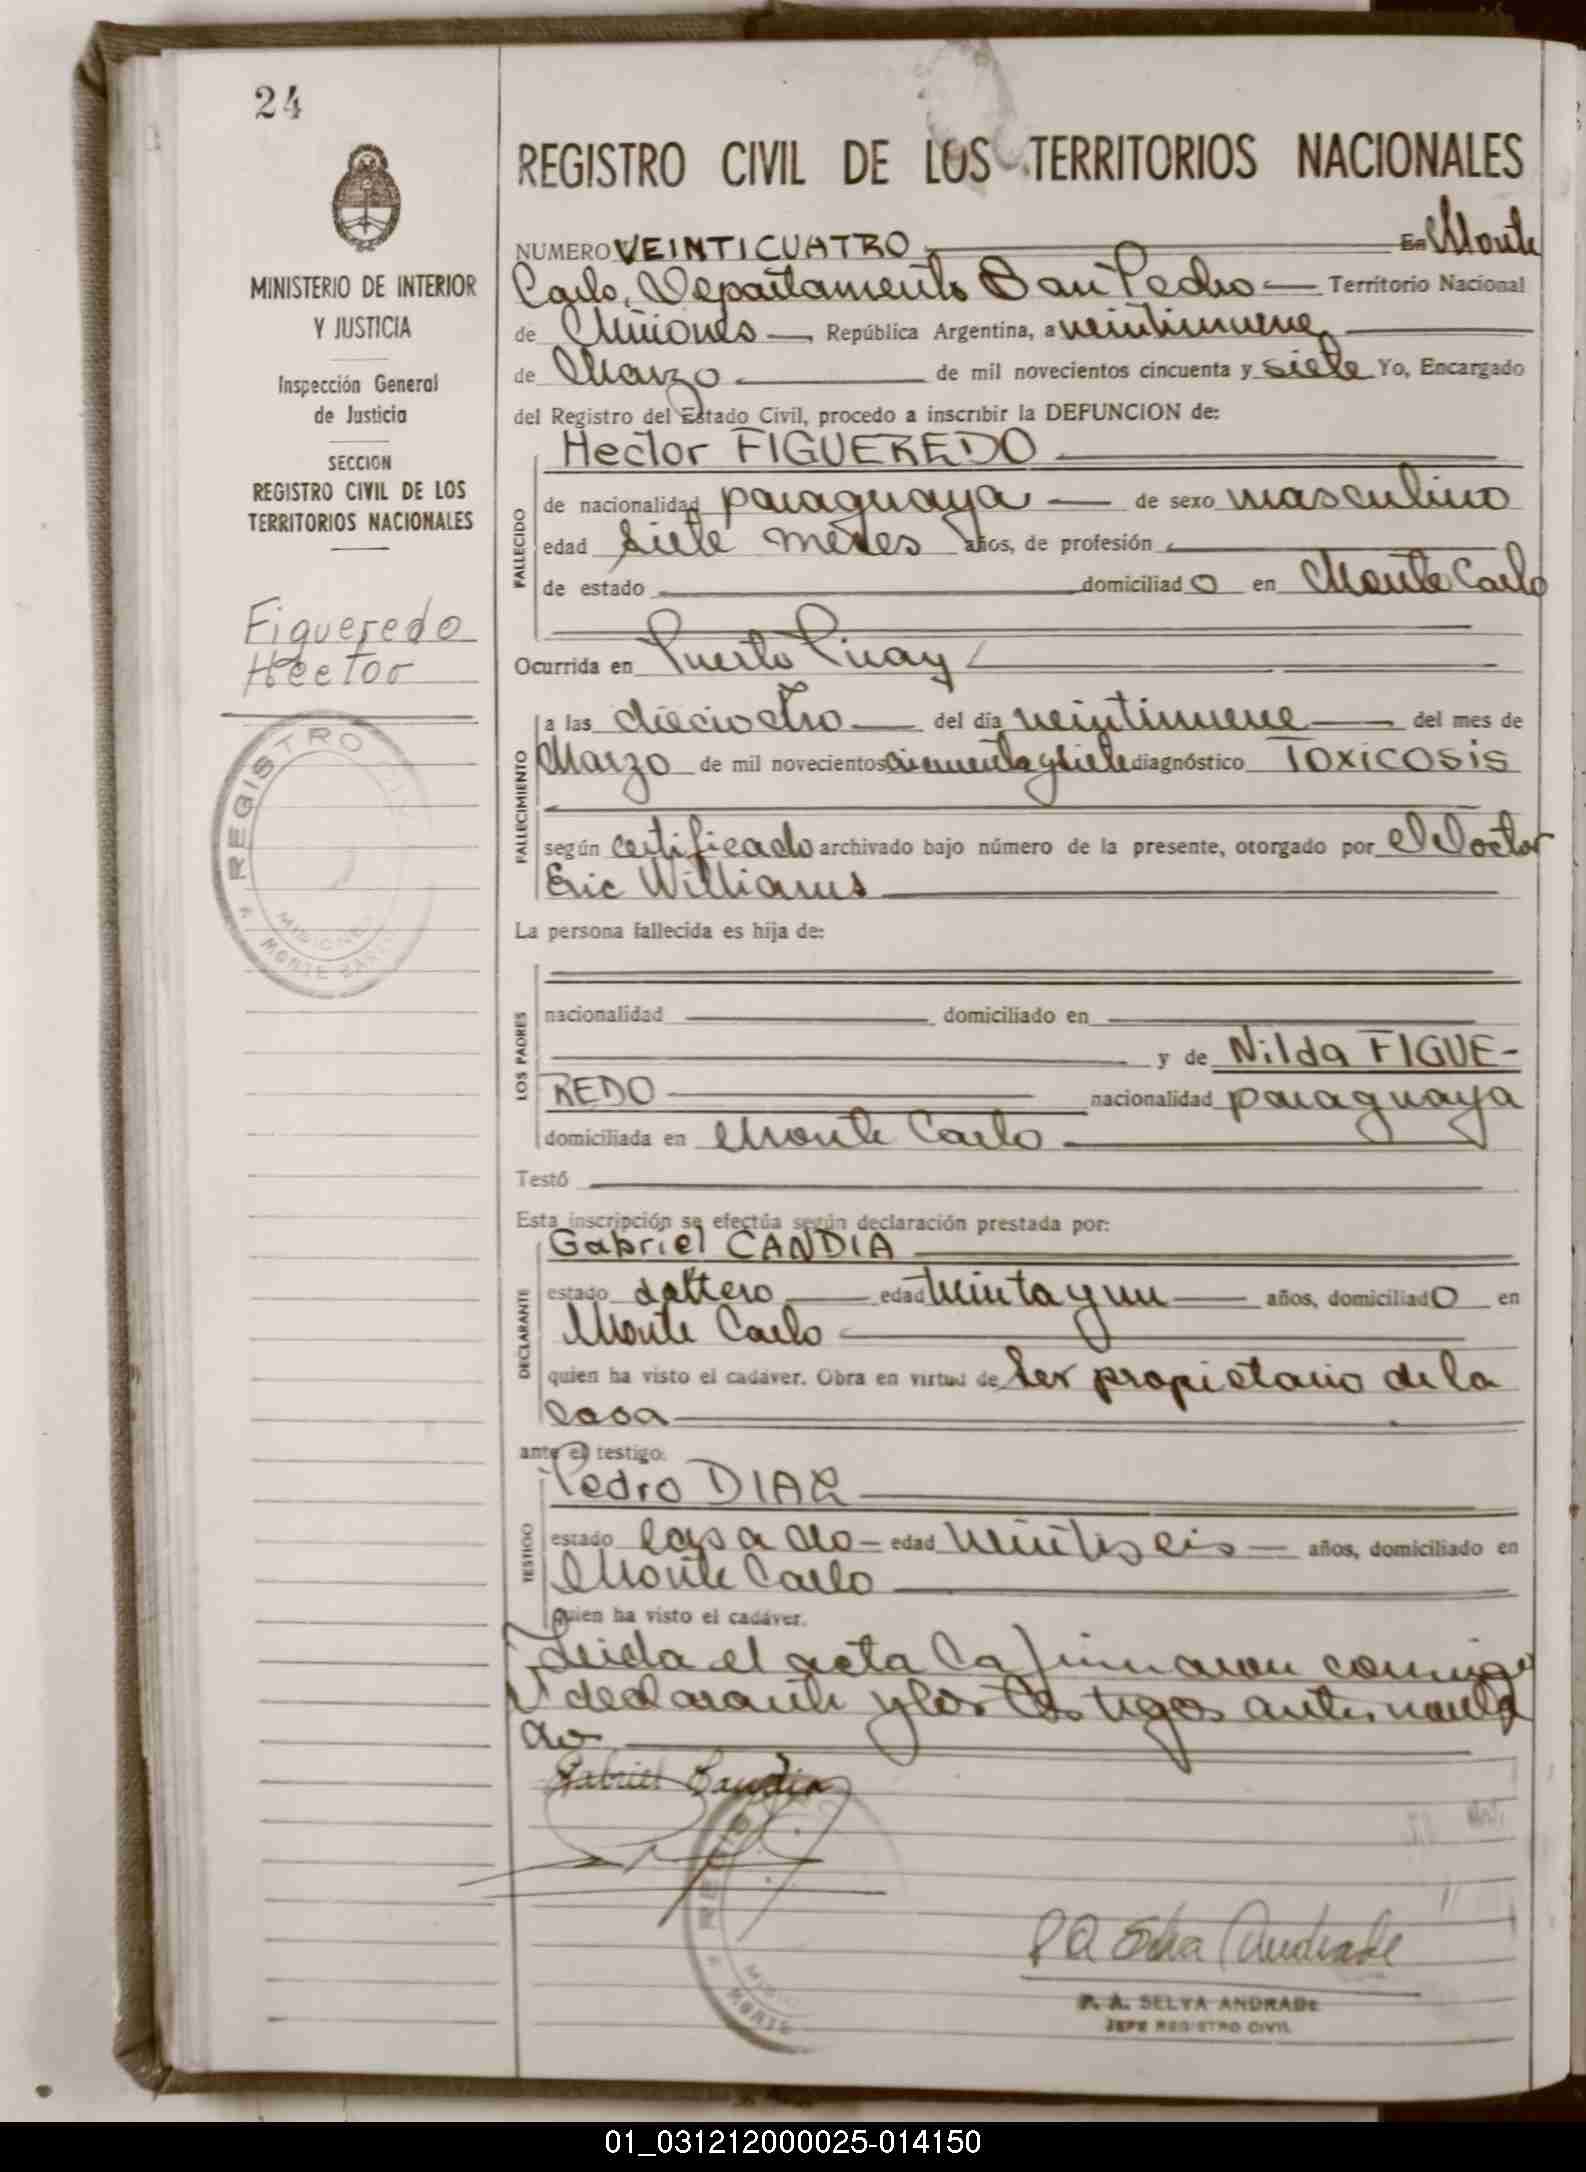 24
MINISTERIO DE INTERIOR
Y JUSTICIA
Inspección General
de Justicia
SECCION
REGISTRO CIVIL DE LOS
TERRITORIOS NACIONALES
Figueredo
Hector
REGISTRO CIVIL
MISIONES
MONTE CARLO
REGISTRO CIVIL DE LOS TERRITORIOS NACIONALES
NUMERO VEINTICUATRO En Monte
Carlo, Departamento San Pedro Territorio Nacional
de Misiones, República Argentina, a veintinueve
de Marzo de mil novecientos cincuenta y siete Yo, Encargado
del Registro del Estado Civil, procedo a inscribir la DEFUNCION de:
FALLECIDO
Hector FIGUEREDO
de nacionalidad paraguaya de sexo masculino
edad siete meses años, de profesión
de estado domiciliado en Monte Carlo
Ocurrida en Puerto Piray
FALLECIMIENTO
a las dieciocho del día veintinueve del mes de
Marzo de mil novecientos cincuenta y siete diagnóstico Toxicosis
según certificado archivado bajo número de la presente, otorgado por el Doctor
Eric Williams
La persona fallecida es hija de:
LOS PADRES
nacionalidad domiciliado en
y de Nilda FIGUE-
REDO nacionalidad paraguaya
domiciliada en Monte Carlo
Testó
Esta inscripción se efectúa según declaración prestada por:
DECLARANTE
Gabriel CANDIA
estado soltero edad treinta y un años, domiciliado en
Monte Carlo
quien ha visto el cadáver. Obra en virtud de ser propietario de la
casa
ante el testigo:
TESTIGO
Pedro DIAZ
estado casado edad veintiseis años, domiciliado en
Monte Carlo
quien ha visto el cadáver.
Leida el acta la firmaron conmigo
el declarante y los testigos antes nombra
do
Gabriel Candia
REGIS
MISIO
MONTE
P A Selva Andrade
P. A. SELVA ANDRADE
JEFE REGISTRO CIVIL
01_031212000025-014150